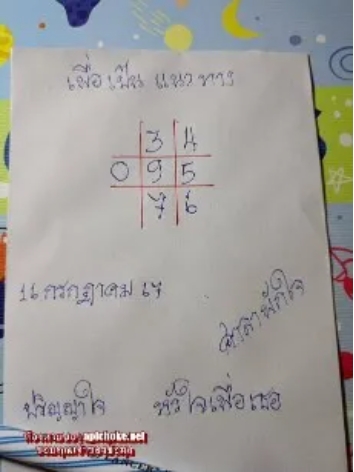 เพื่อเป็น แนวทาง
3 4
0 9 5
7 6
16 กรกฎาคม 67
ปริญญาใจ
หัวใจเพื่อเธอ
aplchoke.net